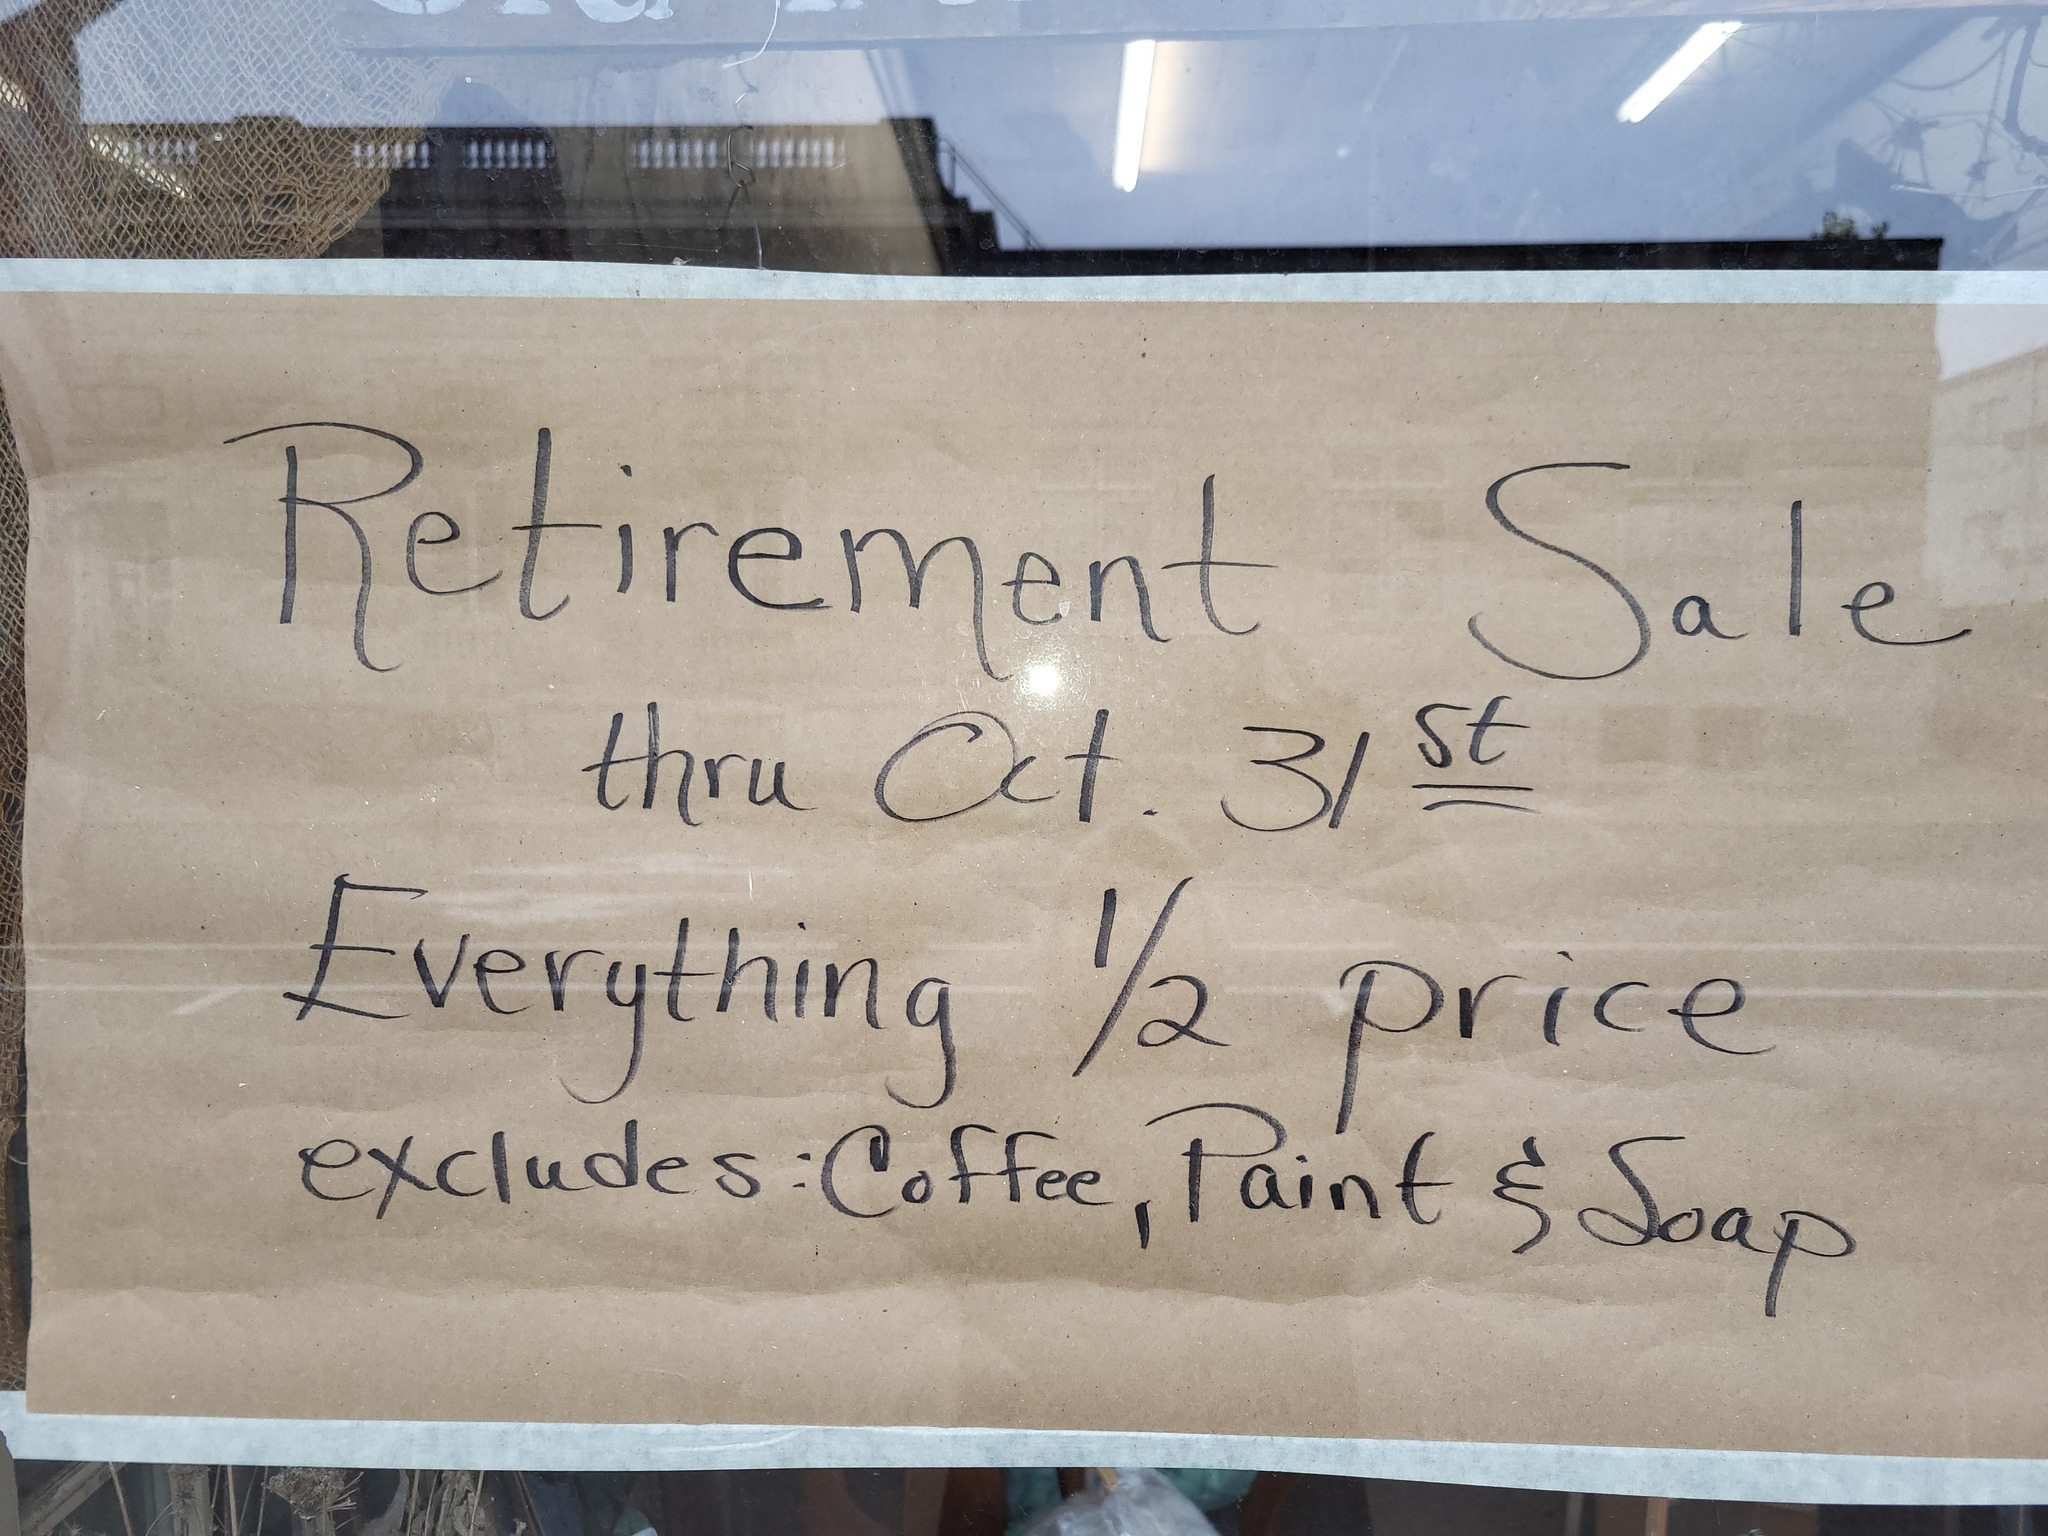 Retirement Sale
thru Oct. 31st
Everything 1/2 price
excludes: Coffee, Paint & Soap